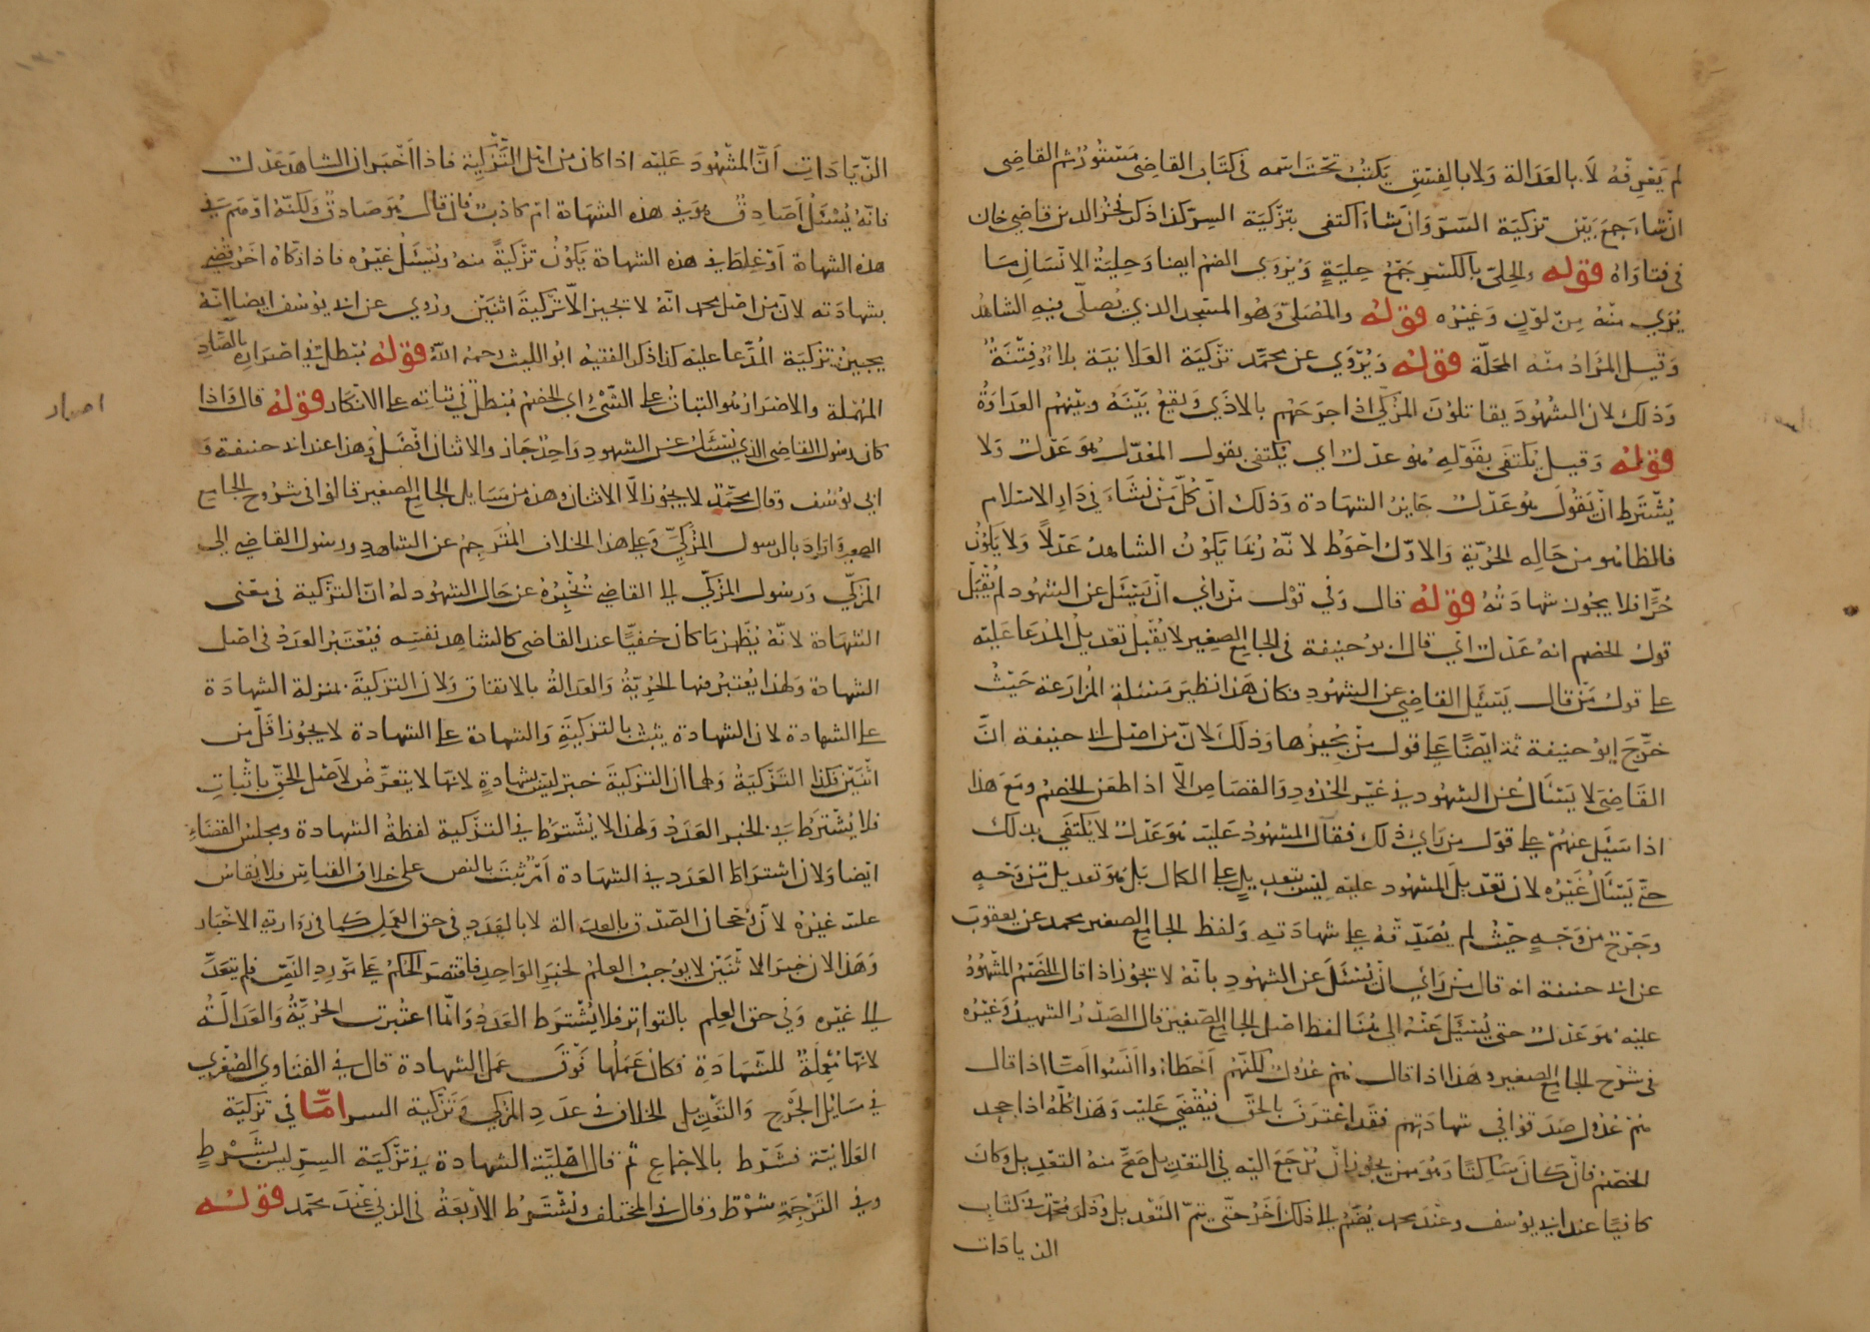 لم يعرفه لا بالعدالة ولا بالفسق يكتب تحت اسمه في كتاب القاضي مستور ثم القاضي
ان شاء جمع بين تزكية السر وان شاء اكتفى بتزكية السر كذا ذكر فخر الدين قاضي خان
في فتاواه قوله والحلى بالكسر جمع حلية ويروي الضم ايضا وحلية الانسان ما
يري منه من لون وغيره قوله والمصلى وهو المسجد الذي يصلى فيه الشاهد
وقيل المراد منه المحلة قوله ويروي عن محمد تزكية العلانية بلاء وفتنة
وذلك لان الشهود يقاتلون المزكي اذا جرحهم بالاذي ويقع بينه وبينهم العداوة
قوله وقيل يكتفى بقوله هو عدل اي يكتفى بقول المعدل هو عدل ولا
يشترط ان يقول هو عدل جايز الشهادة وذلك ان كل من نشاء في دار الاسلام
فالظاهر من حاله الحرية والاول احوط لانه ربما يكون الشاهد عدلا ولا يكون
حرا فلا يجوز شهادته قوله قال وفي قول من رأي ان يسئل عن الشهود لم يقبل
قول الخصم انه عدل اي قال ابو حنيفة في الجامع الصغير لا يقبل تعديل المدعا عليه
على قول من قال يسئل القاضي عن الشهود وكان هذا نظير مسئلة المزارعة حيث
خرج ابو حنيفة ثمة ايضا على قول من يجيزها وذلك لان من اصل ابي حنيفة ان
القاضي لا يسئل عن الشهود في غير الحدود والقصاص الا اذا طعن الخصم ومع هذا
اذا سئل عنهم على قول من راي ذلك فقال المشهود عليه هو عدل لا يكتفي بذلك
حتى يسئل غيره لان تعديل المشهود عليه ليس بتعديل على الكمال بل هو تعديل من وجه
وجرح من وجه حيث لم يصدقه على شهادته ولفظ الجامع الصغير محمد عن يعقوب
عن ابي حنيفة انه قال من راي ان يسئل عن الشهود بانه لا يجوز اذا قال الخصم المشهود
عليه هو عدل حتى يسئل عنه الى هنا لفظ اصل الجامع الصغير قال الصدر الشهيد وغيره
في شرح الجامع الصغير وهذا اذا قال هم عدول لكنهم اخطاؤا او انسوا اما اذا قال
هم عدول صدقوا في شهادتهم فقد اعترف بالحق فيقضي عليه وهذا كله اذا جحد
الخصم فان كان ساكتا وهو ممن يجوز ان يرجع اليه في التعديل صح منه التعديل وكان
كافيا عند ابي يوسف وعند محمد يضم الى ذلك اخر حتى يتم التعديل وذكر محمد في كتاب
الزيادات
الزيادات ان المشهود عليه اذا كان من اهل التزكية فاذا اخبر ان الشاهد عدل
فانه يسئل اصادق هو في هذه الشهادة ام كاذب فان قال هو صادق ولكنه اوهم في
هذه الشهادة او غلط في هذه الشهادة يكون تزكية منه ويسئل غيره فاذا زكاه اخر قضي
بشهادته لان من اصل محمد انه لا تجيز الا تزكية اثنين وروي عن ابي يوسف ايضا انه
يجيز تزكية المدعا عليه كذا ذكر الفقيه ابو الليث رحمه الله قوله مبطل في اصراره بالصاد
المهملة والاصرار هو الثبات على الشيء اي الخصم مبطل في ثباته على الانكار قوله قال واذا
كان رسول القاضي الذي يسئل عن الشهود واحد جاز والاثنان افضل وهذا عند ابي حنيفة و
ابي يوسف وقال محمد لا يجوز الا اثنان وهذه من مسايل الجامع الصغير قالوا في شروح الجامع
الصغير واراد بالرسول المزكي وعلى هذا الخلاف المترجم عن الشاهد ورسول القاضي الى
المزكي ورسول المزكي الى القاضي تخبره عن حال الشهود له ان التزكية في معنى
الشهادة لانه يظهر ما كان خفيا عند القاضي كالشاهد نفسه فيعتبر العدد في اصل
الشهادة ولهذا يعتبر فيها الحرية والعدالة بالاتفاق ولان التزكية بمنزلة الشهادة
على الشهادة لان الشهادة يثبت بالتزكية والشهادة على الشهادة لا يجوز اقل من
اثنين فكذا التزكية ولهما ان التزكية خبر ليس بشهادة لانها لا يتعرض لاصل الحق باثبات
فلا يشترط في الخبر العدد ولهذا لا يشترط في التزكية لفظة الشهادة ومجلس القضاء
ايضا ولان اشتراط العدد في الشهادة امر ثبت بالنص على خلاف القياس فلا يقاس
عليه غيره لان رجحان الصدق بالعدالة لا بالعدد في حق العمل كما في رواية الاخبار
وهذا لان خبر الاثنين لا يوجب العلم كخبر الواحد فاقتصر الحكم على مورد النص فلم يتعد
الى غيره وفي حق العلم بالتواتر فلا يشترط العدد وانما اعتبرت الحرية والعدالة
لانها معملة للشهادة فكان عملها فوق عمل الشهادة قال في الفتاوي الصغري
في مسايل الجرح والتعديل الخلاف في عدد المزكي في تزكية السر اما في تزكية
العلانية فشرط بالاجماع ثم قال اهلية الشهادة في تزكية السر ليس بشرط
وفي الترجمة شرط وقال في المختلف ويشترط الاربعة في الزني عند محمد قوله